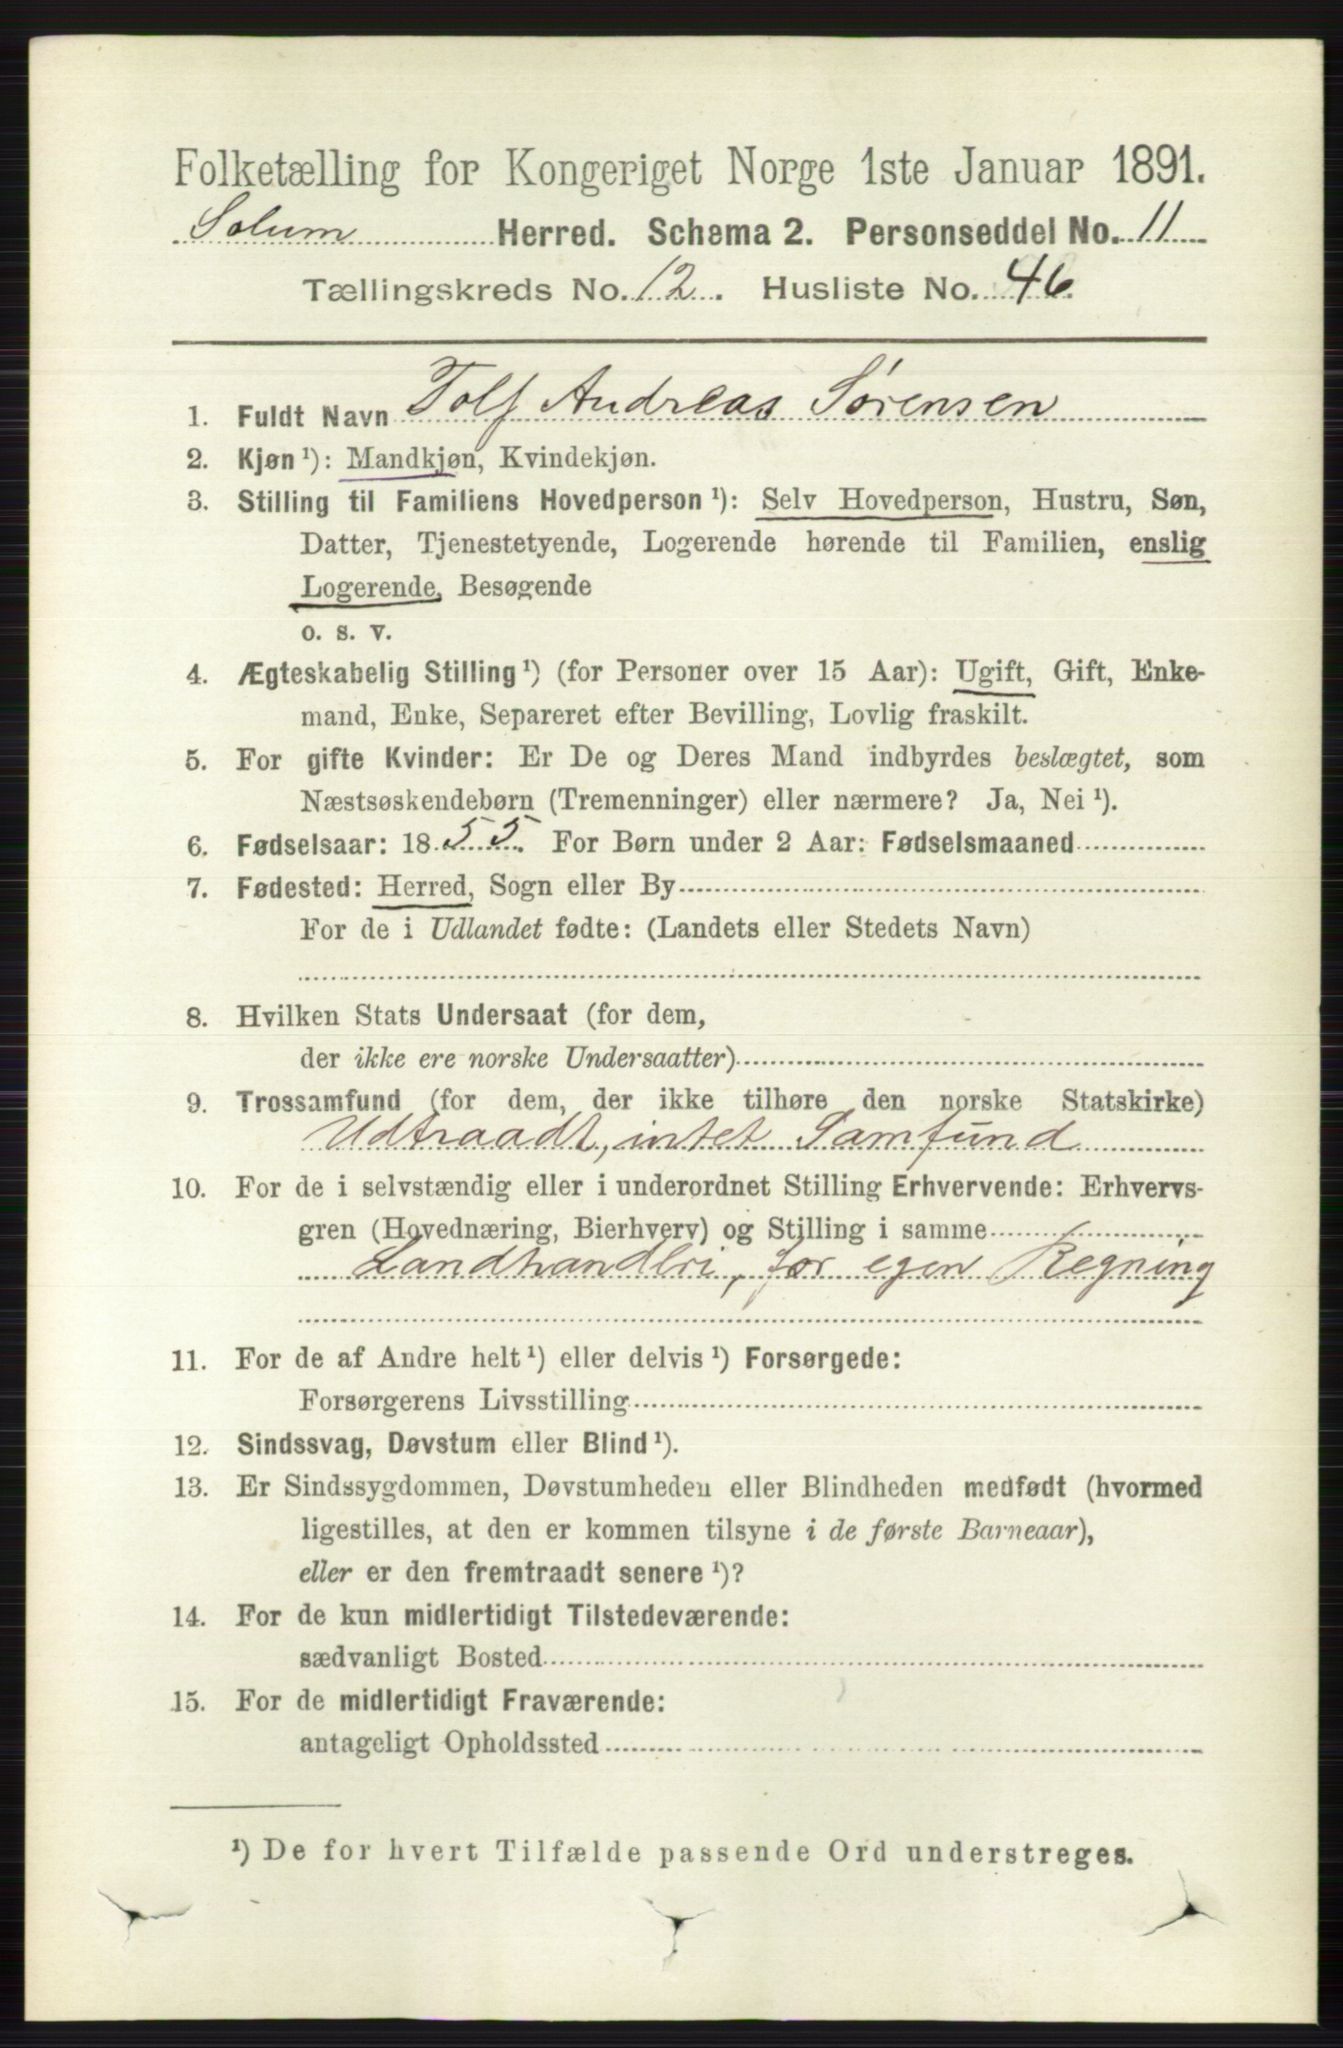 Folketælling for Kongeriget Norge 1ste Januar 1891.
Solum Herred. Schema 2. Personseddel No. 11
Tællingskreds No. 12. Husliste No. 46.
1. Fuldt Navn Tolf Andreas Sørensen
2. Kjøn ¹): Mandkjøn, Kvindekjøn.
3. Stilling til Familiens Hovedperson ¹): Selv Hovedperson, Hustru, Søn,
Datter, Tjenestetyende, Logerende hørende til Familien, enslig
Logerende, Besøgende
o. s. v.
4. Ægteskabelig Stilling ¹) (for Personer over 15 Aar): Ugift, Gift, Enke-
mand, Enke, Separeret efter Bevilling, Lovlig fraskilt.
5. For gifte Kvinder: Er De og Deres Mand indbyrdes beslægtet, som
Næstsøskendebørn (Tremenninger) eller nærmere? Ja, Nei ¹).
6. Fødselsaar: 1855. For Børn under 2 Aar: Fødselsmaaned
7. Fødested: Herred, Sogn eller By
For de i Udlandet fødte: (Landets eller Stedets Navn)
8. Hvilken Stats Undersaat (for dem,
der ikke ere norske Undersaatter)
9. Trossamfund (for dem, der ikke tilhøre den norske Statskirke)
Udtraadt, intet Samfund
10. For de i selvstændig eller i underordnet Stilling Erhvervende: Erhvervs-
gren (Hovednæring, Bierhverv) og Stilling i samme
Landhandleri, for egen Regning
11. For de af Andre helt ¹) eller delvis ¹) Forsørgede:
Forsørgerens Livsstilling
12. Sindssvag, Døvstum eller Blind ¹).
13. Er Sindssygdommen, Døvstumheden eller Blindheden medfødt (hvormed
ligestilles, at den er kommen tilsyne i de første Barneaar),
eller er den fremtraadt senere ¹)?
14. For de kun midlertidigt Tilstedeværende:
sædvanligt Bosted
15. For de midlertidigt Fraværende:
antageligt Opholdssted
¹) De for hvert Tilfælde passende Ord understreges.